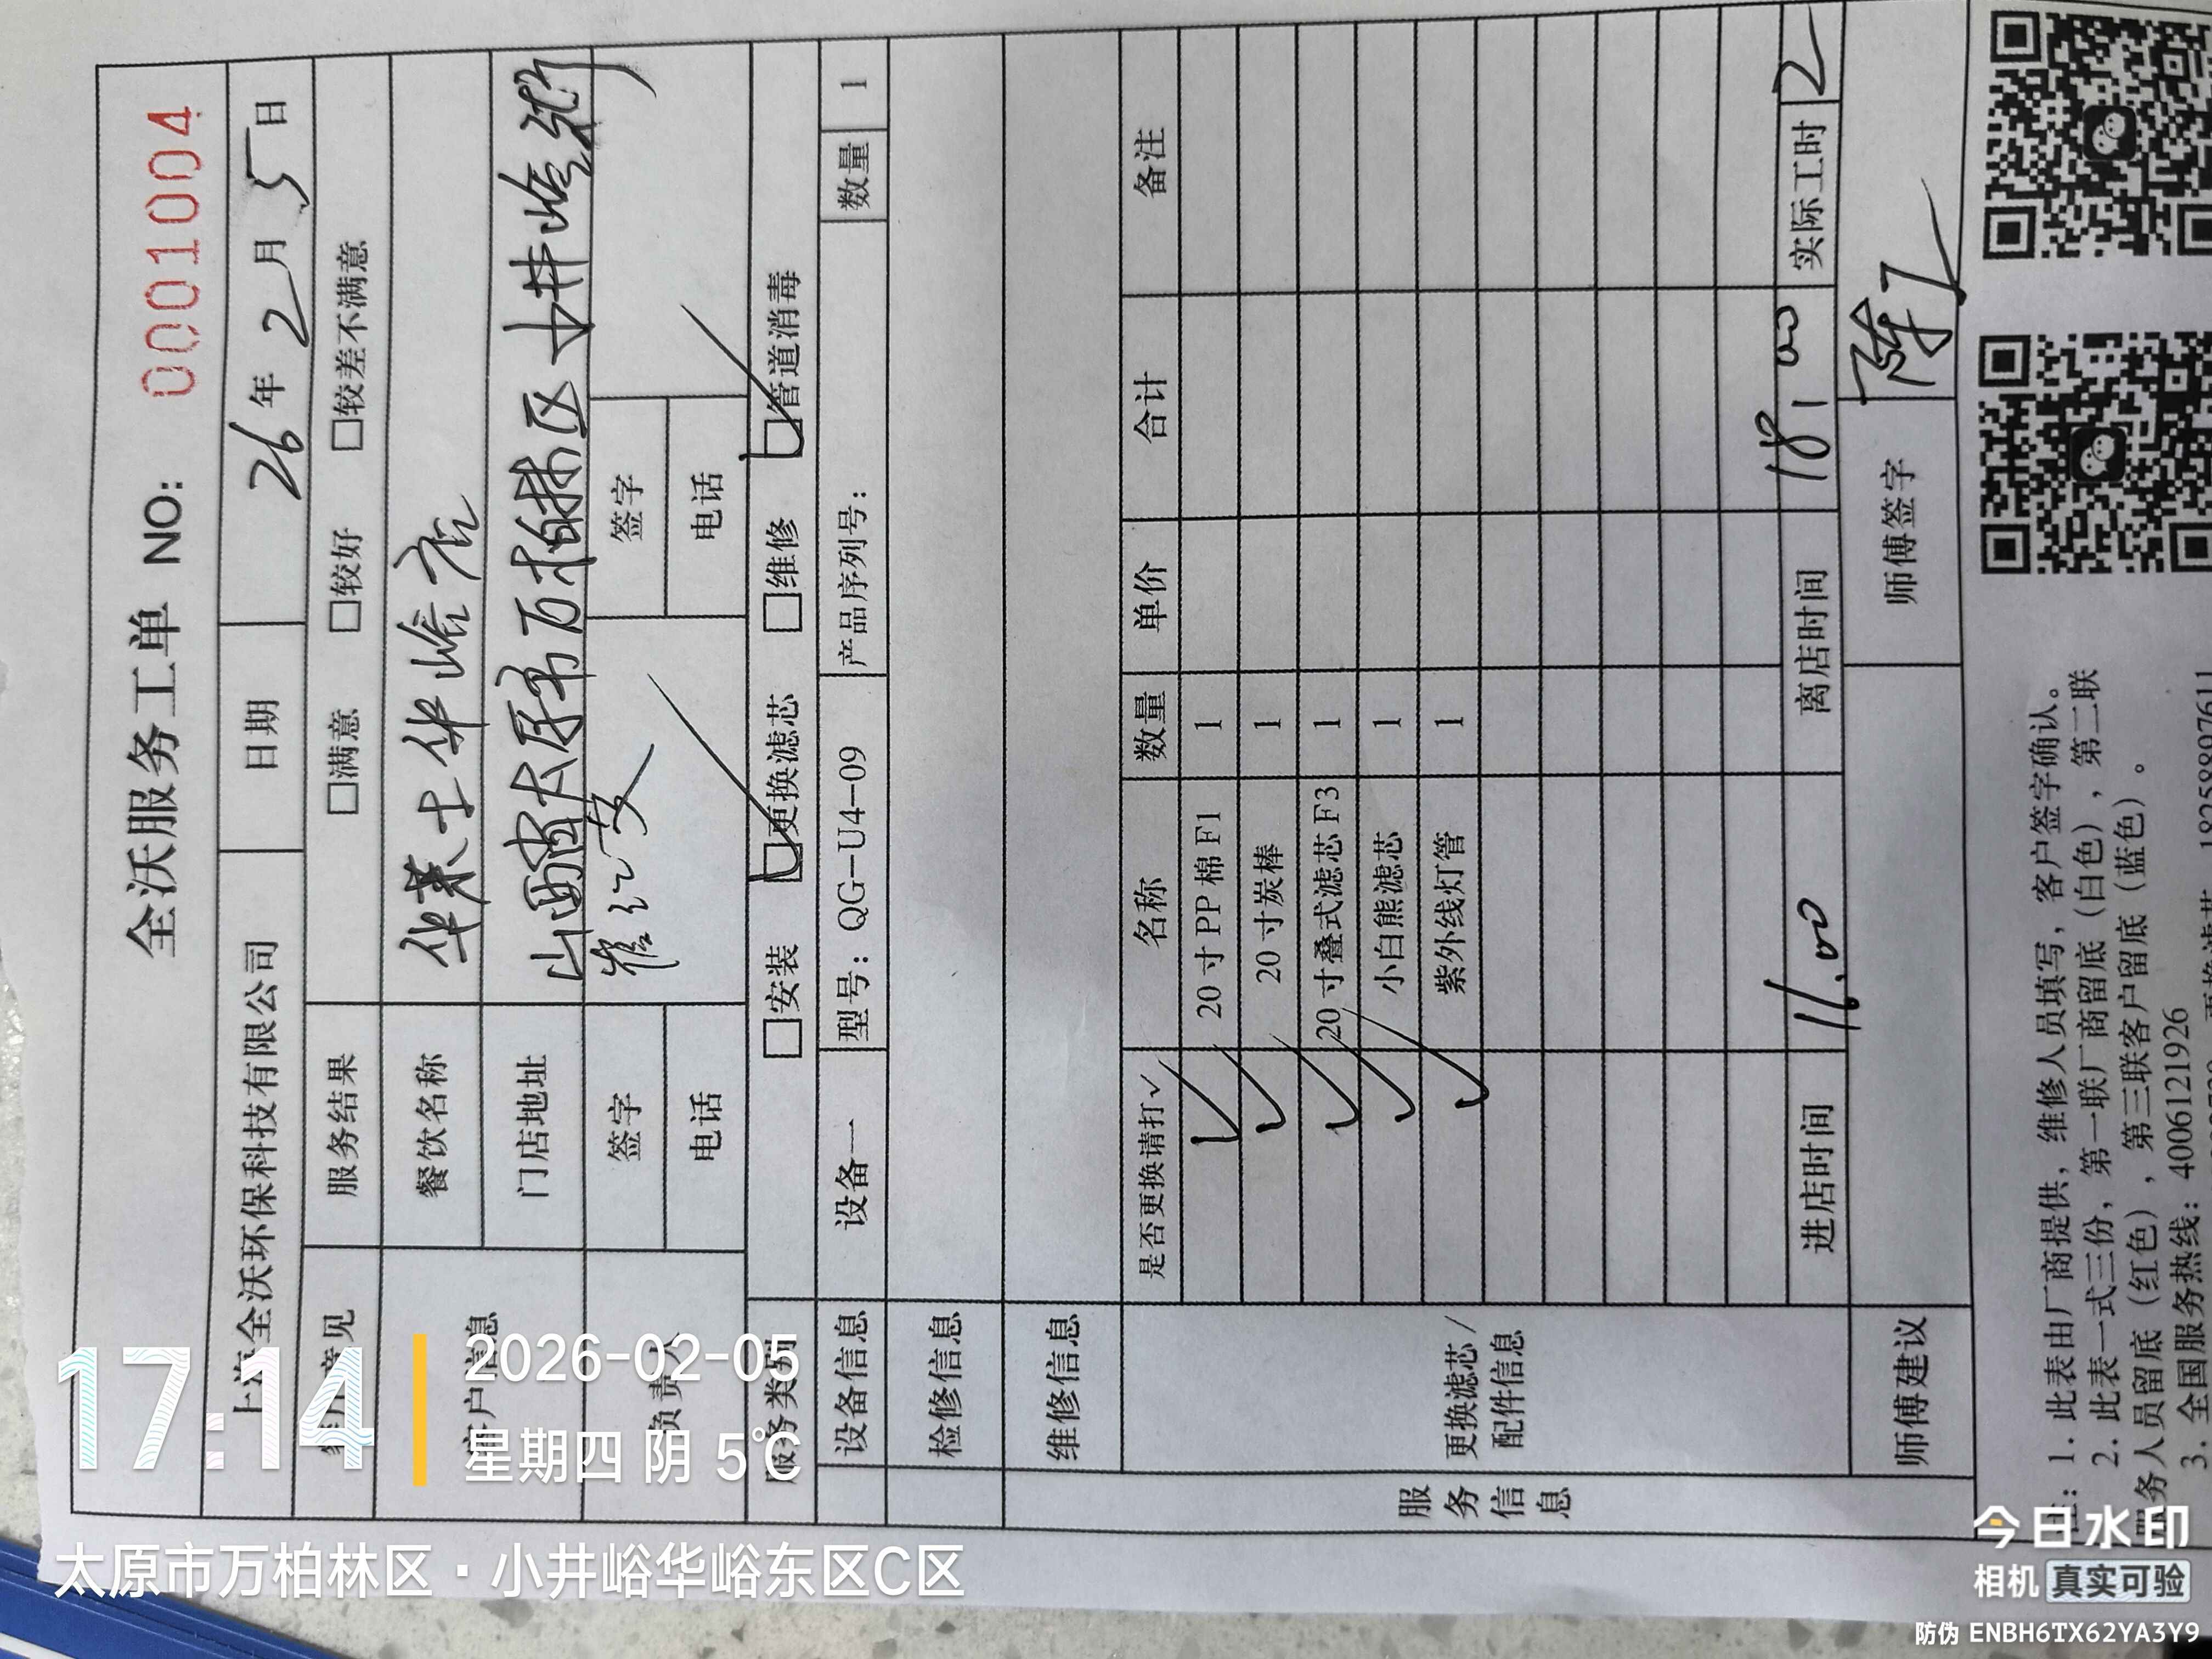 全沃服务工单 NO: 0001004
上海全沃环保科技有限公司 日期 26年2月5日
服务结果 □满意 □较好 □较差不满意
客户信息 餐饮名称 华莱士华峪店
门店地址 山西省太原市万柏林区小井峪街
负责人 签字 签字
电话 电话
服务类别 □安装 □更换滤芯 □维修 □管道消毒
设备信息 设备一 型号：QG-U4-09 产品序列号： 数量 1
检修信息
维修信息
服务信息
更换滤芯/配件信息
是否更换请打✓ 名称 数量 单价 合计 备注
✓ 20寸PP棉F1 1
✓ 20寸炭棒 1
✓ 20寸叠式滤芯F3 1
✓ 小白熊滤芯 1
✓ 紫外线灯管 1
进店时间 离店时间 18:00 实际工时 2
师傅建议 师傅签字
注：1. 此表由厂商提供，维修人员填写，客户签字确认。
2. 此表一式三份，第一联厂商留底（白色），第二联
服务人员留底（红色），第三联客户留底（蓝色）。
3. 全国服务热线：4006121926
17:14
2026-02-05
星期四 阴 5℃
太原市万柏林区·小井峪华峪东区C区
今日水印
相机 真实可验
防伪 ENBH6TX62YA3Y9